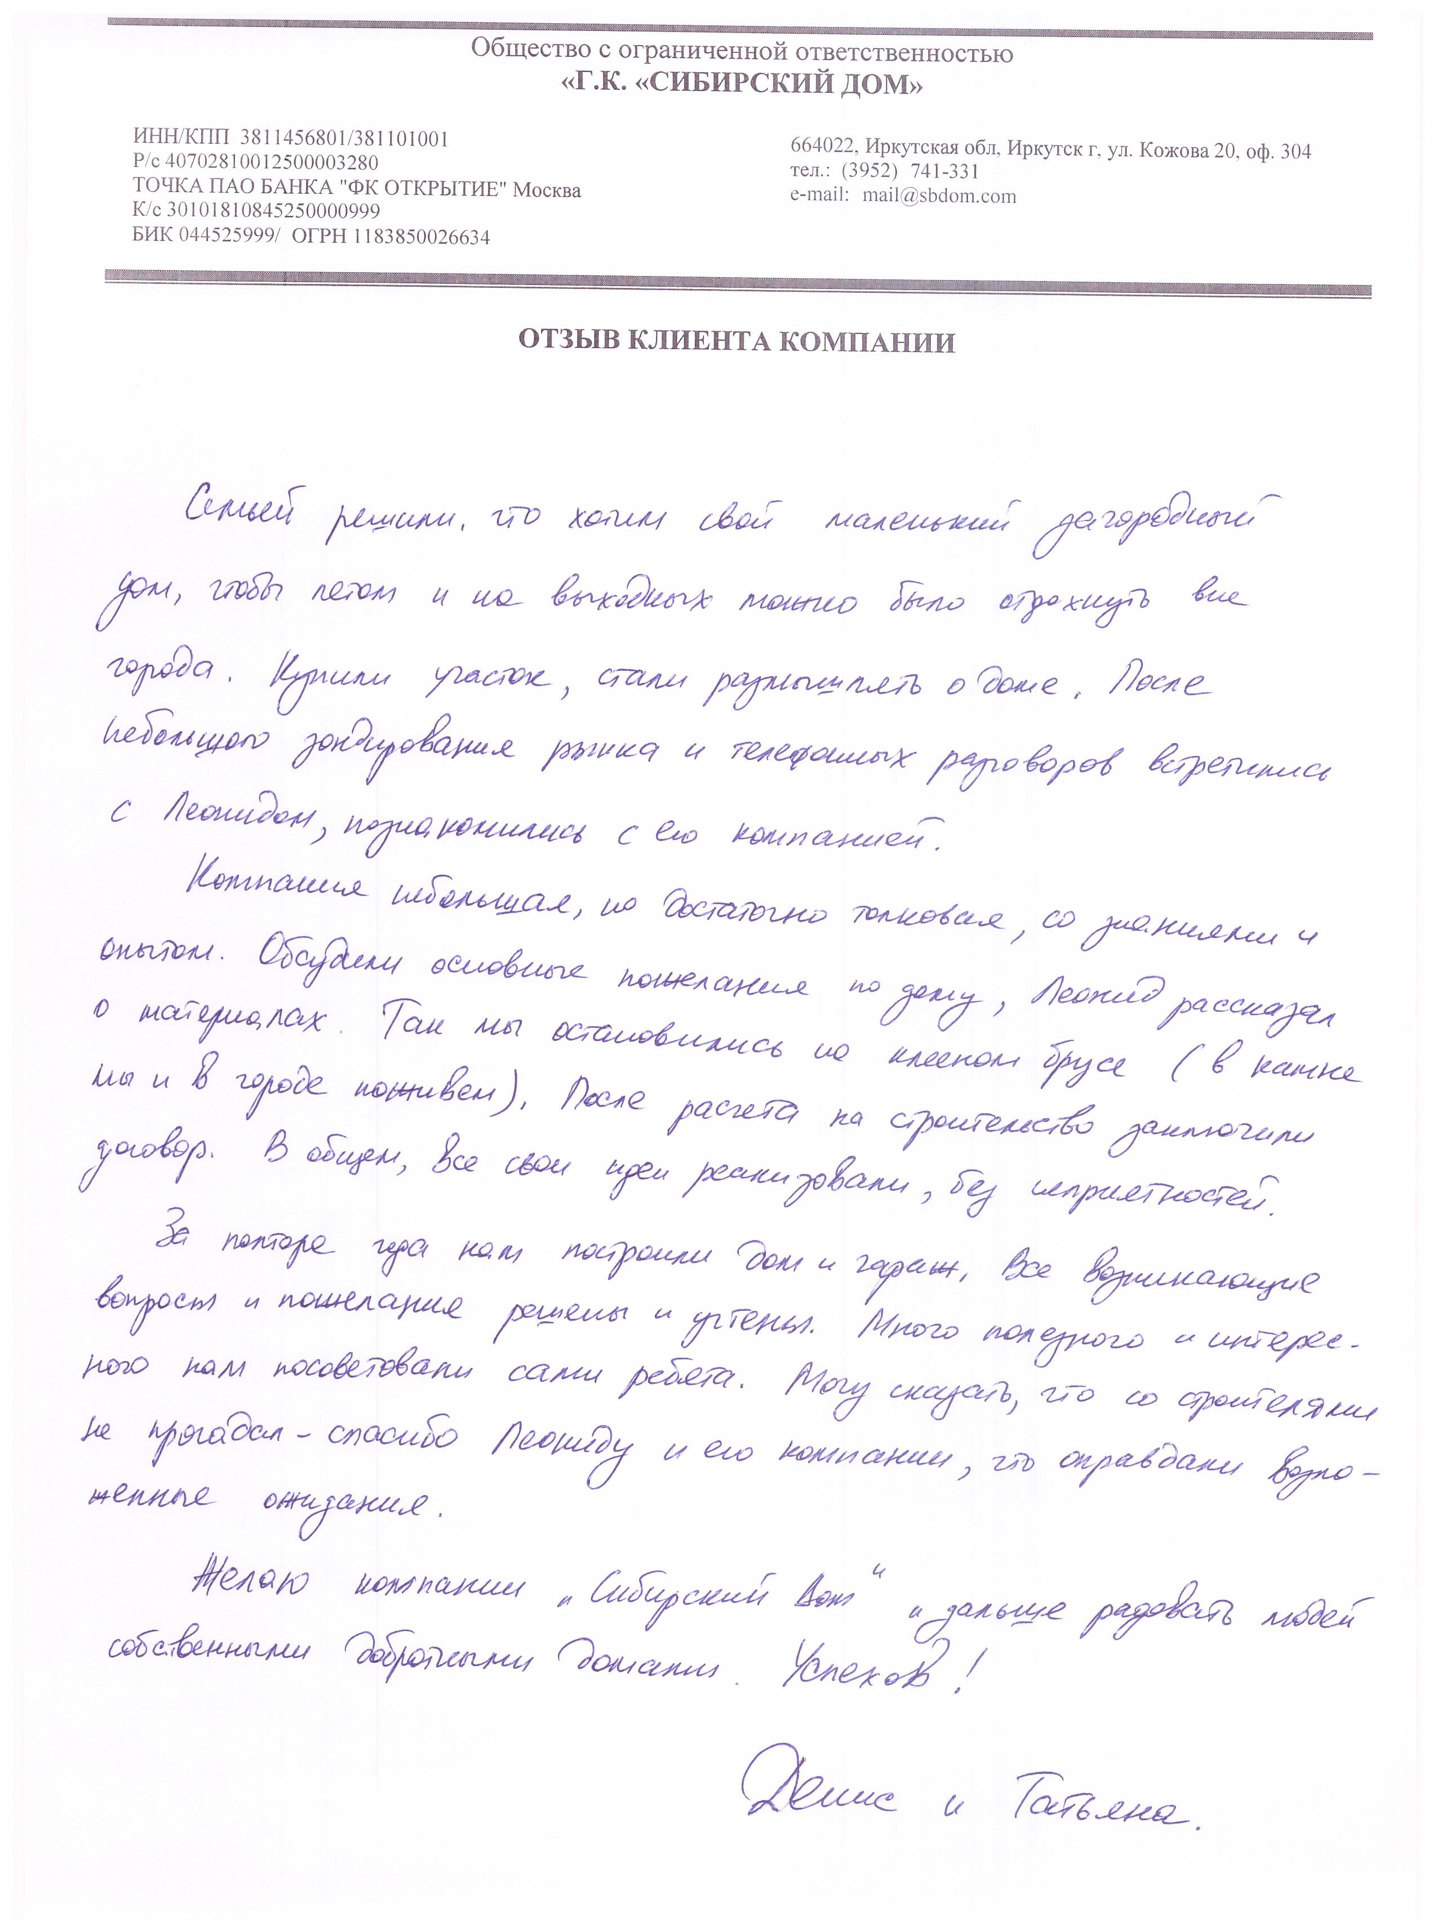 Общество с ограниченной ответственностью
«Г.К. «СИБИРСКИЙ ДОМ»
ИНН/КПП 3811456801/381101001
Р/с 40702810012500003280
ТОЧКА ПАО БАНКА "ФК ОТКРЫТИЕ" Москва
К/с 30101810845250000999
БИК 044525999/ ОГРН 1183850026634
664022, Иркутская обл, Иркутск г, ул. Кожова 20, оф. 304
тел.: (3952) 741-331
e-mail: mail@sbdom.com
ОТЗЫВ КЛИЕНТА КОМПАНИИ
Семьей решили, что хотим свой маленький загородный
дом, чтобы летом и на выходных можно было отдохнуть вне
города. Купили участок, стали размышлять о доме. После
небольшого зондирования рынка и телефонных разговоров встретились
с Леонидом, познакомились с его компанией.
Компания небольшая, но достаточно толковая, со знаниями и
опытом. Обсудили основные пожелания по дому, Леонид рассказал
о материалах. Так мы остановились на клееном брусе (в камне
мы и в городе поживем). После расчета на строительство заключили
договор. В общем, все свои идеи реализовали, без неприятностей.
За полтора года нам построили дом и гараж. Все возникающие
вопросы и пожелания решены и учтены. Много полезного и интерес-
ного нам посоветовали сами ребята. Могу сказать, что со строителями
не прогадал - спасибо Леониду и его компании, что оправдали возло-
женные ожидания.
Желаю компании „Сибирский Дом" и дальше радовать людей
собственными добротными домами. Успехов!
Денис и Татьяна.